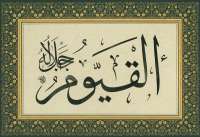 القيوم جل جلاله